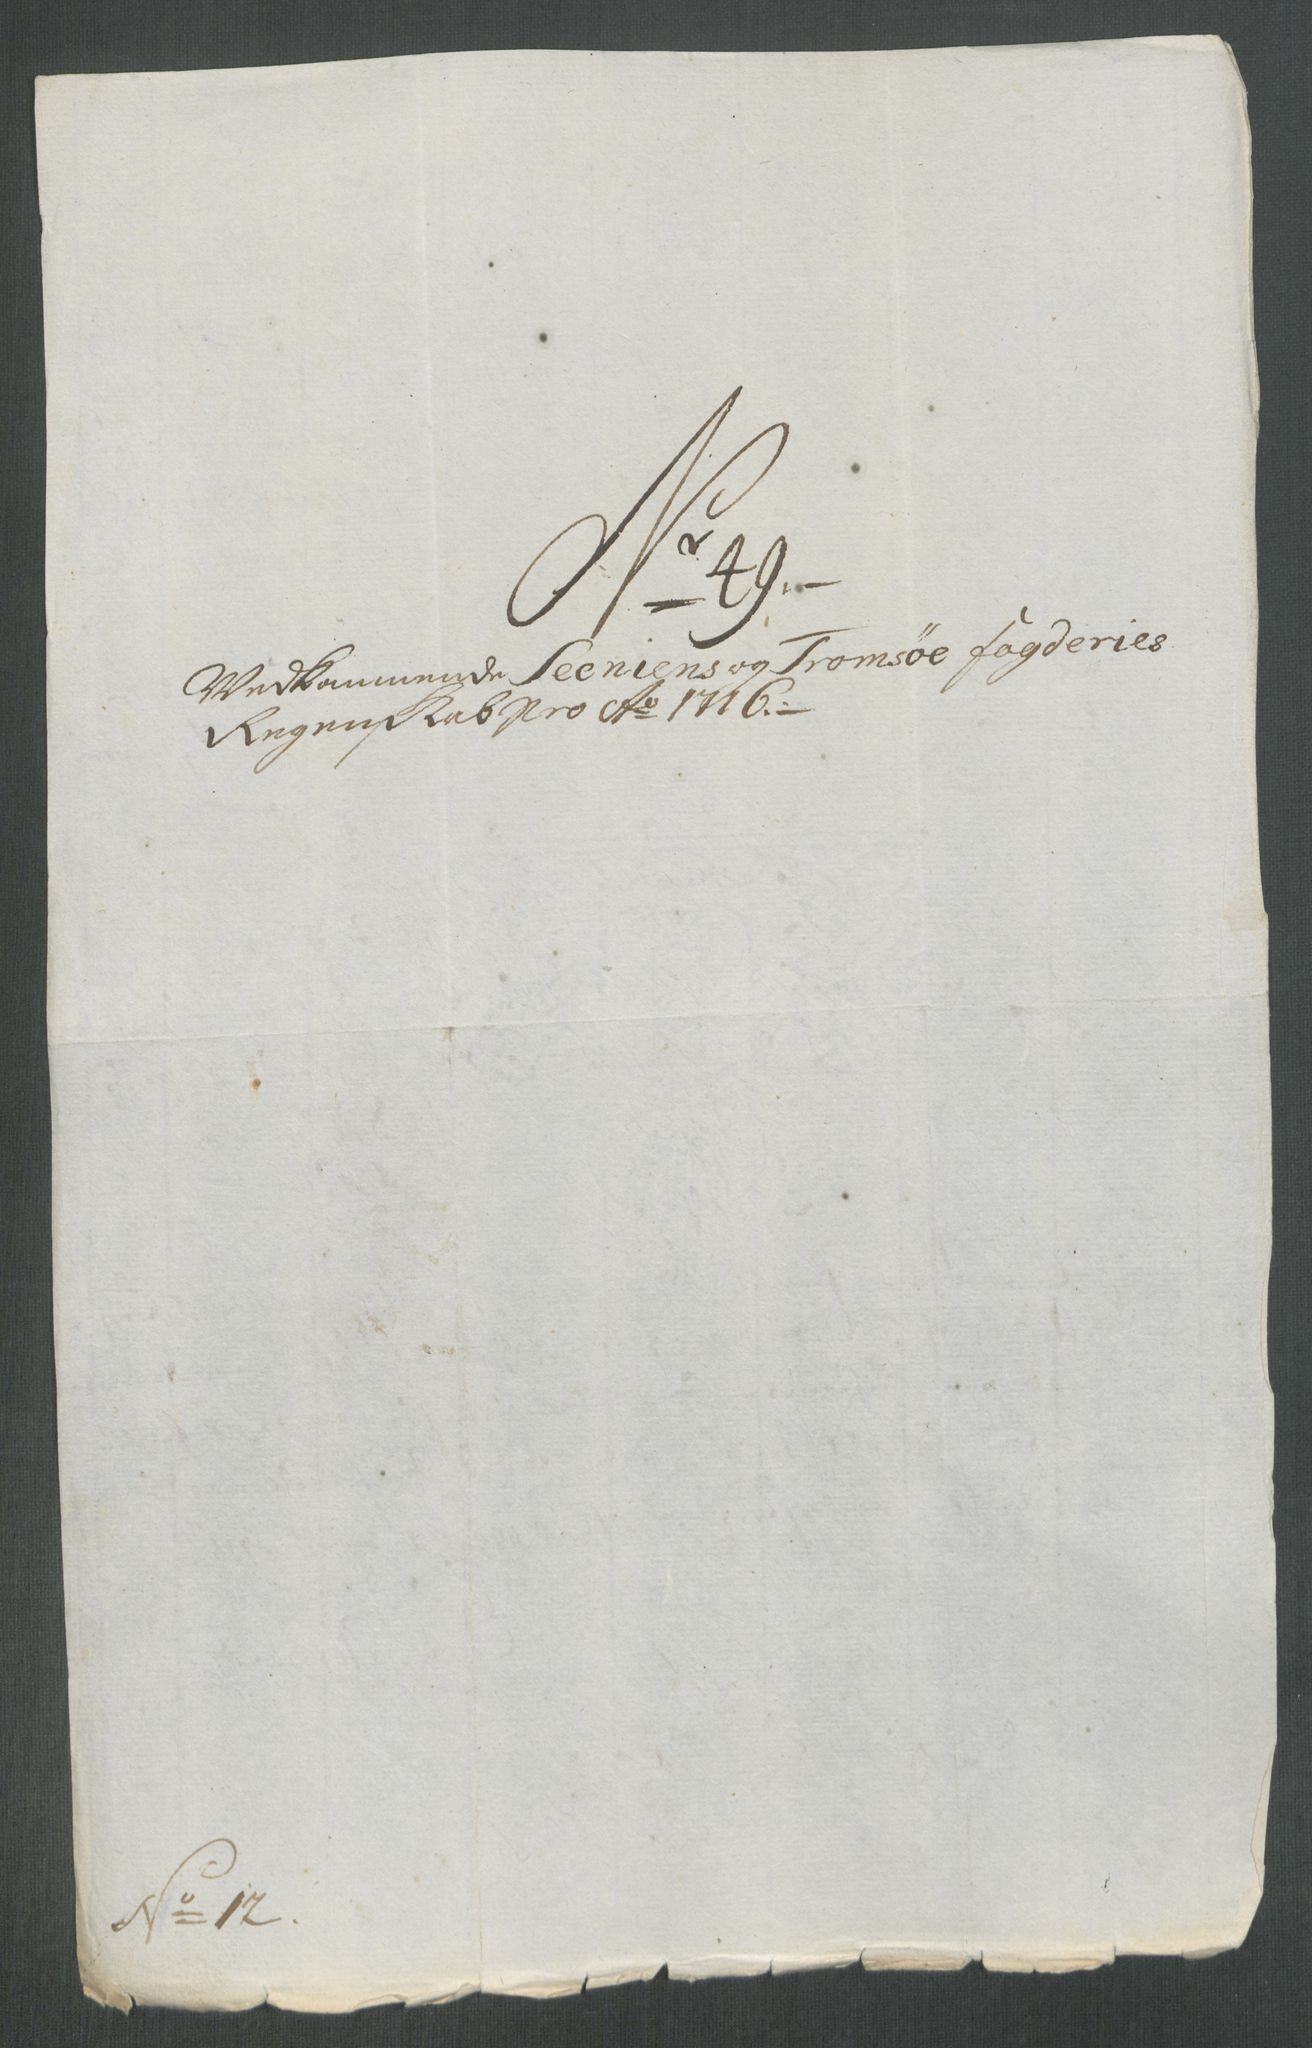 Nr 49.–
Vedkommende Seeniens og Tromsöe fogderies
Regenskab pro Ao 1716.–
No 12.